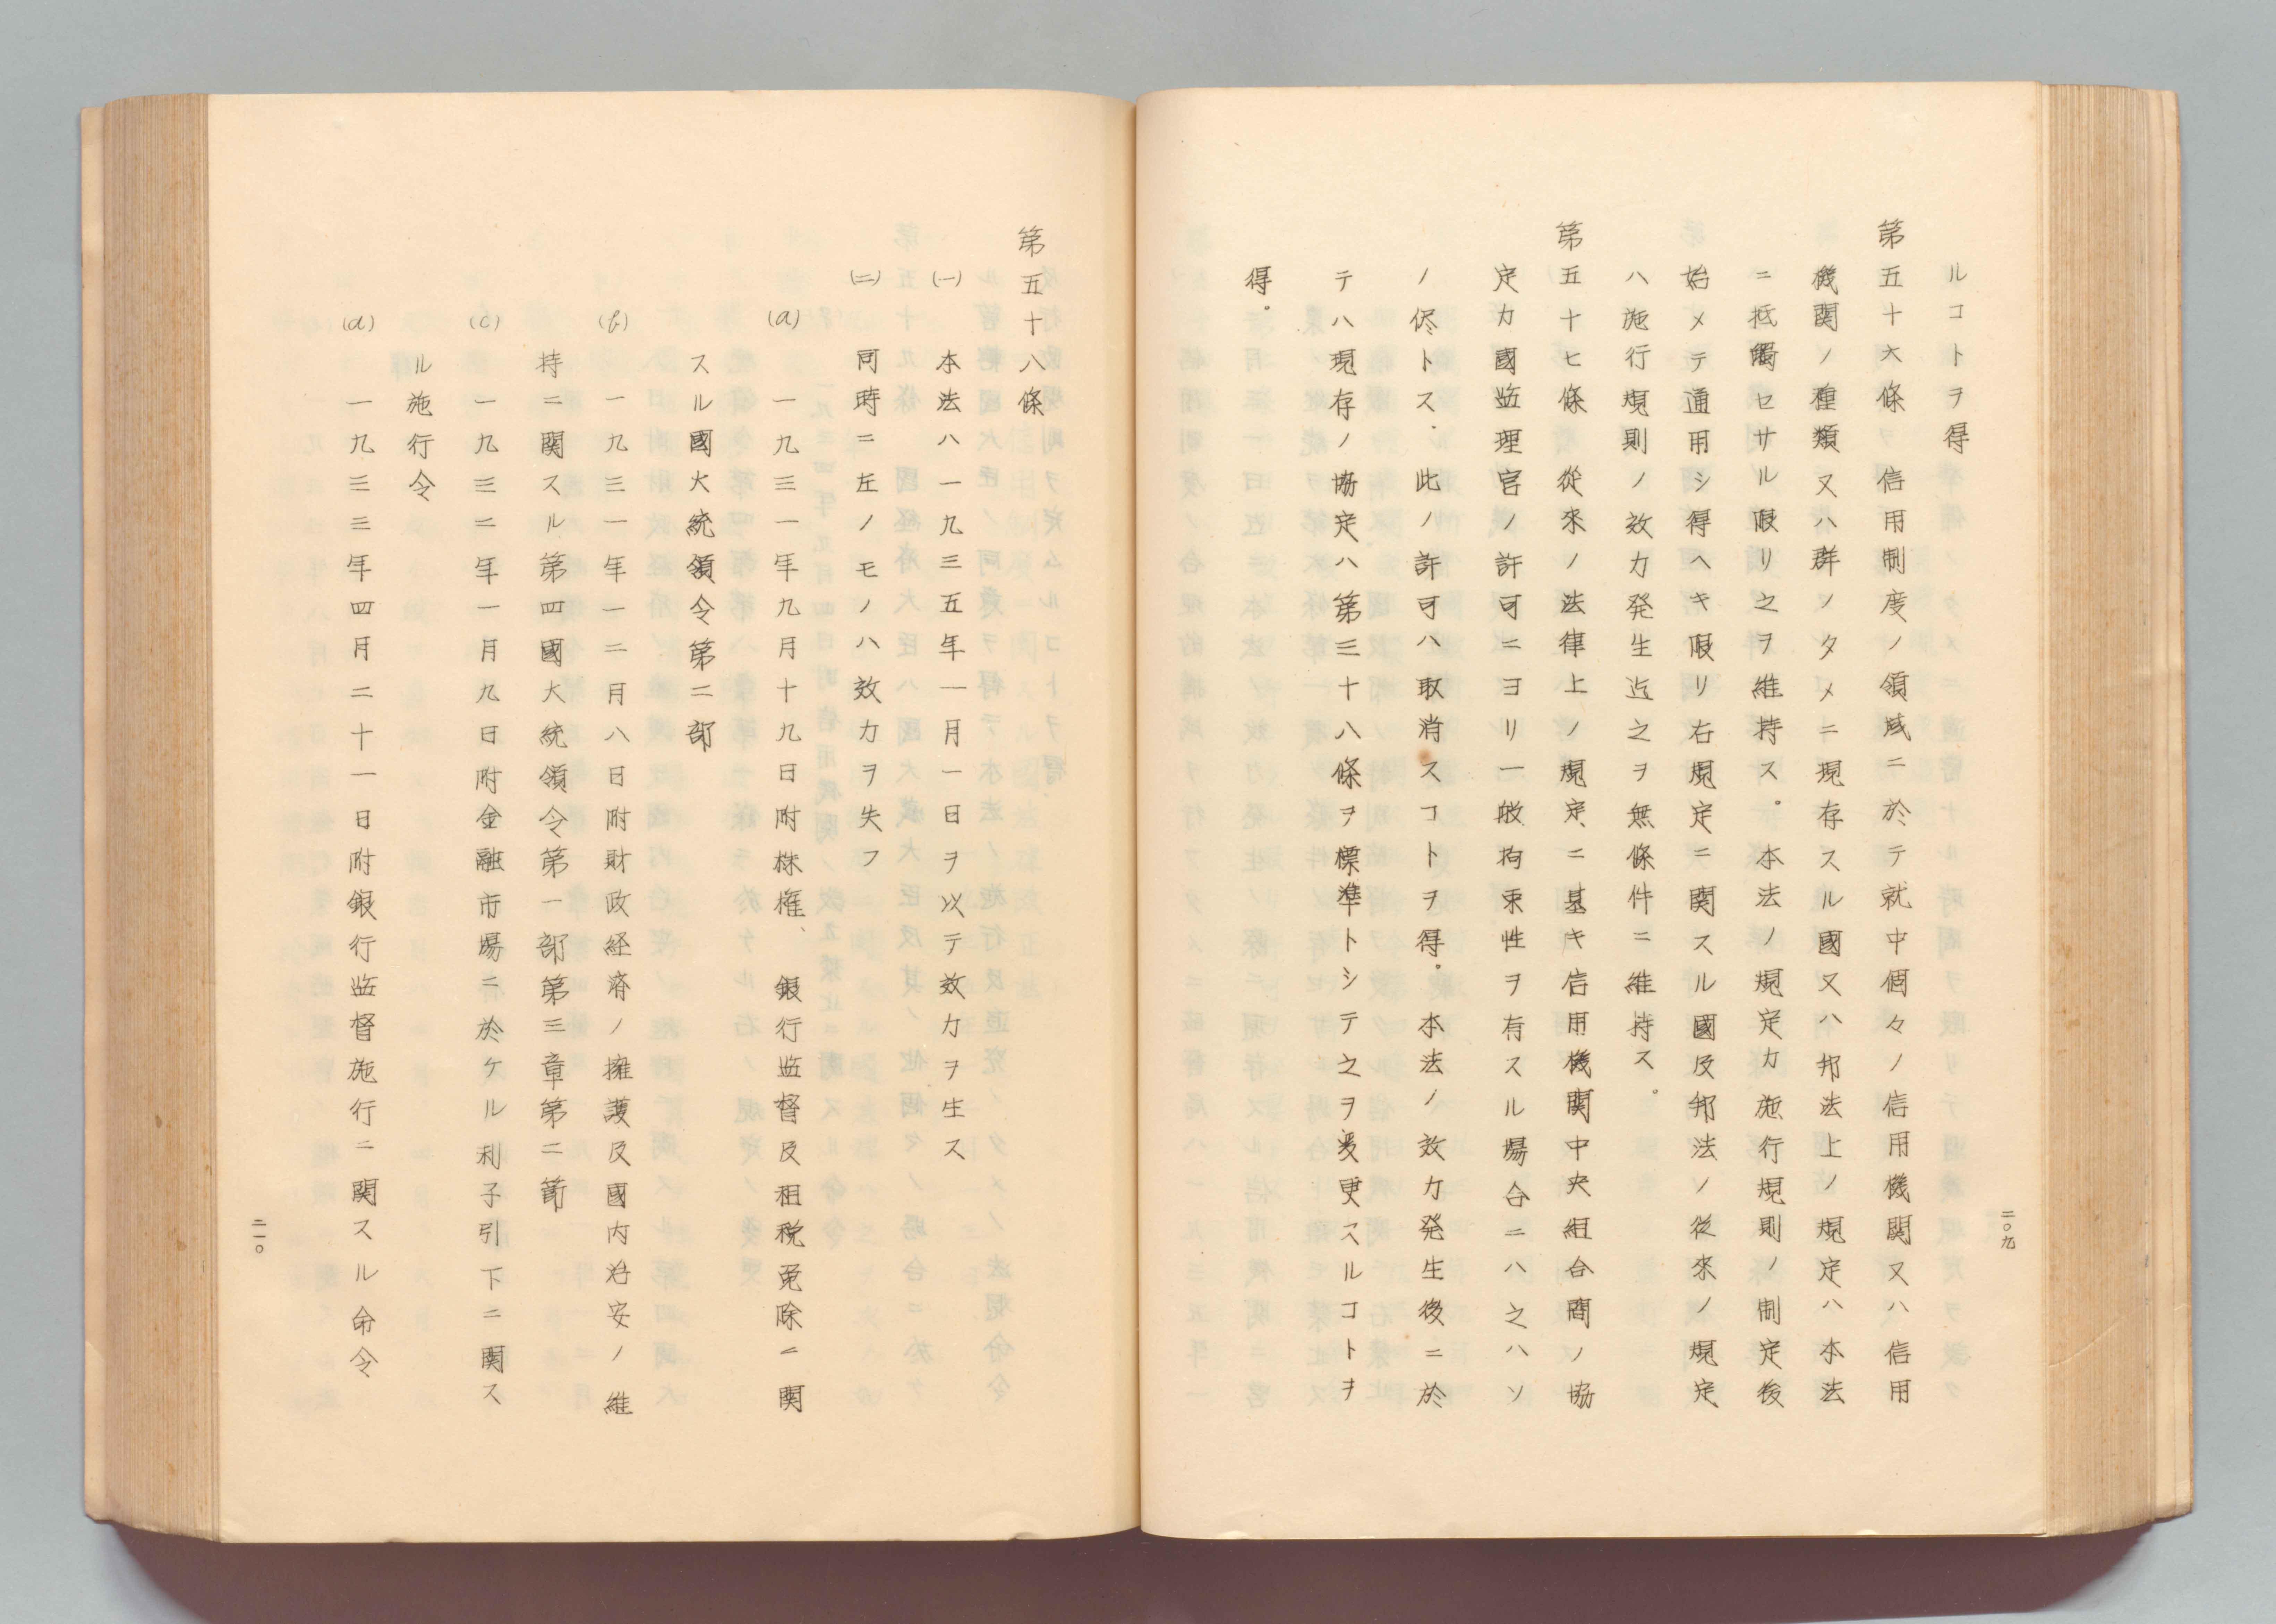 ルコトヲ得
第五十六條　信用制度ノ領域ニ於テ就中個々ノ信用機関又ハ信用
機関ノ種類又ハ群ノタメニ現存スル國又ハ邦法上ノ規定ハ本法
ニ抵觸セサル限リ之ヲ維持ス。本法ノ規定カ施行規則ノ制定後
始メテ通用シ得ヘキ限リ右規定ニ関スル國及邦法ノ從來ノ規定
ハ施行規則ノ效力発生迄之ヲ無條件ニ維持ス。
第五十七條　從來ノ法律上ノ規定ニ基キ信用機関中央組合間ノ協
定カ國監理官ノ許可ニヨリ一般拘束性ヲ有スル場合ニハ之ハソ
ノ侭トス．此ノ許可ハ取消スコトヲ得。本法ノ效力発生後ニ於
テハ現存ノ協定ハ第三十八條ヲ標準トシテ之ヲ変更スルコトヲ
得。
二〇九
第五十八條
(一)　本法ハ一九三五年一月一日ヲ以テ效力ヲ生ス
(二)　同時ニ左ノモノハ效力ヲ失フ
(a)　一九三一年九月十九日附株権、銀行監督及租税免除ニ関
スル國大統領令第二部
(b)　一九三一年一二月八日附財政経済ノ擁護及國内治安ノ維
持ニ関スル第四國大統領令第一部第三章第二節
(c)　一九三二年一月九日附金融市場ニ於ケル利子引下ニ関ス
ル施行令
(d)　一九三三年四月二十一日附銀行監督施行ニ関スル命令
二一〇